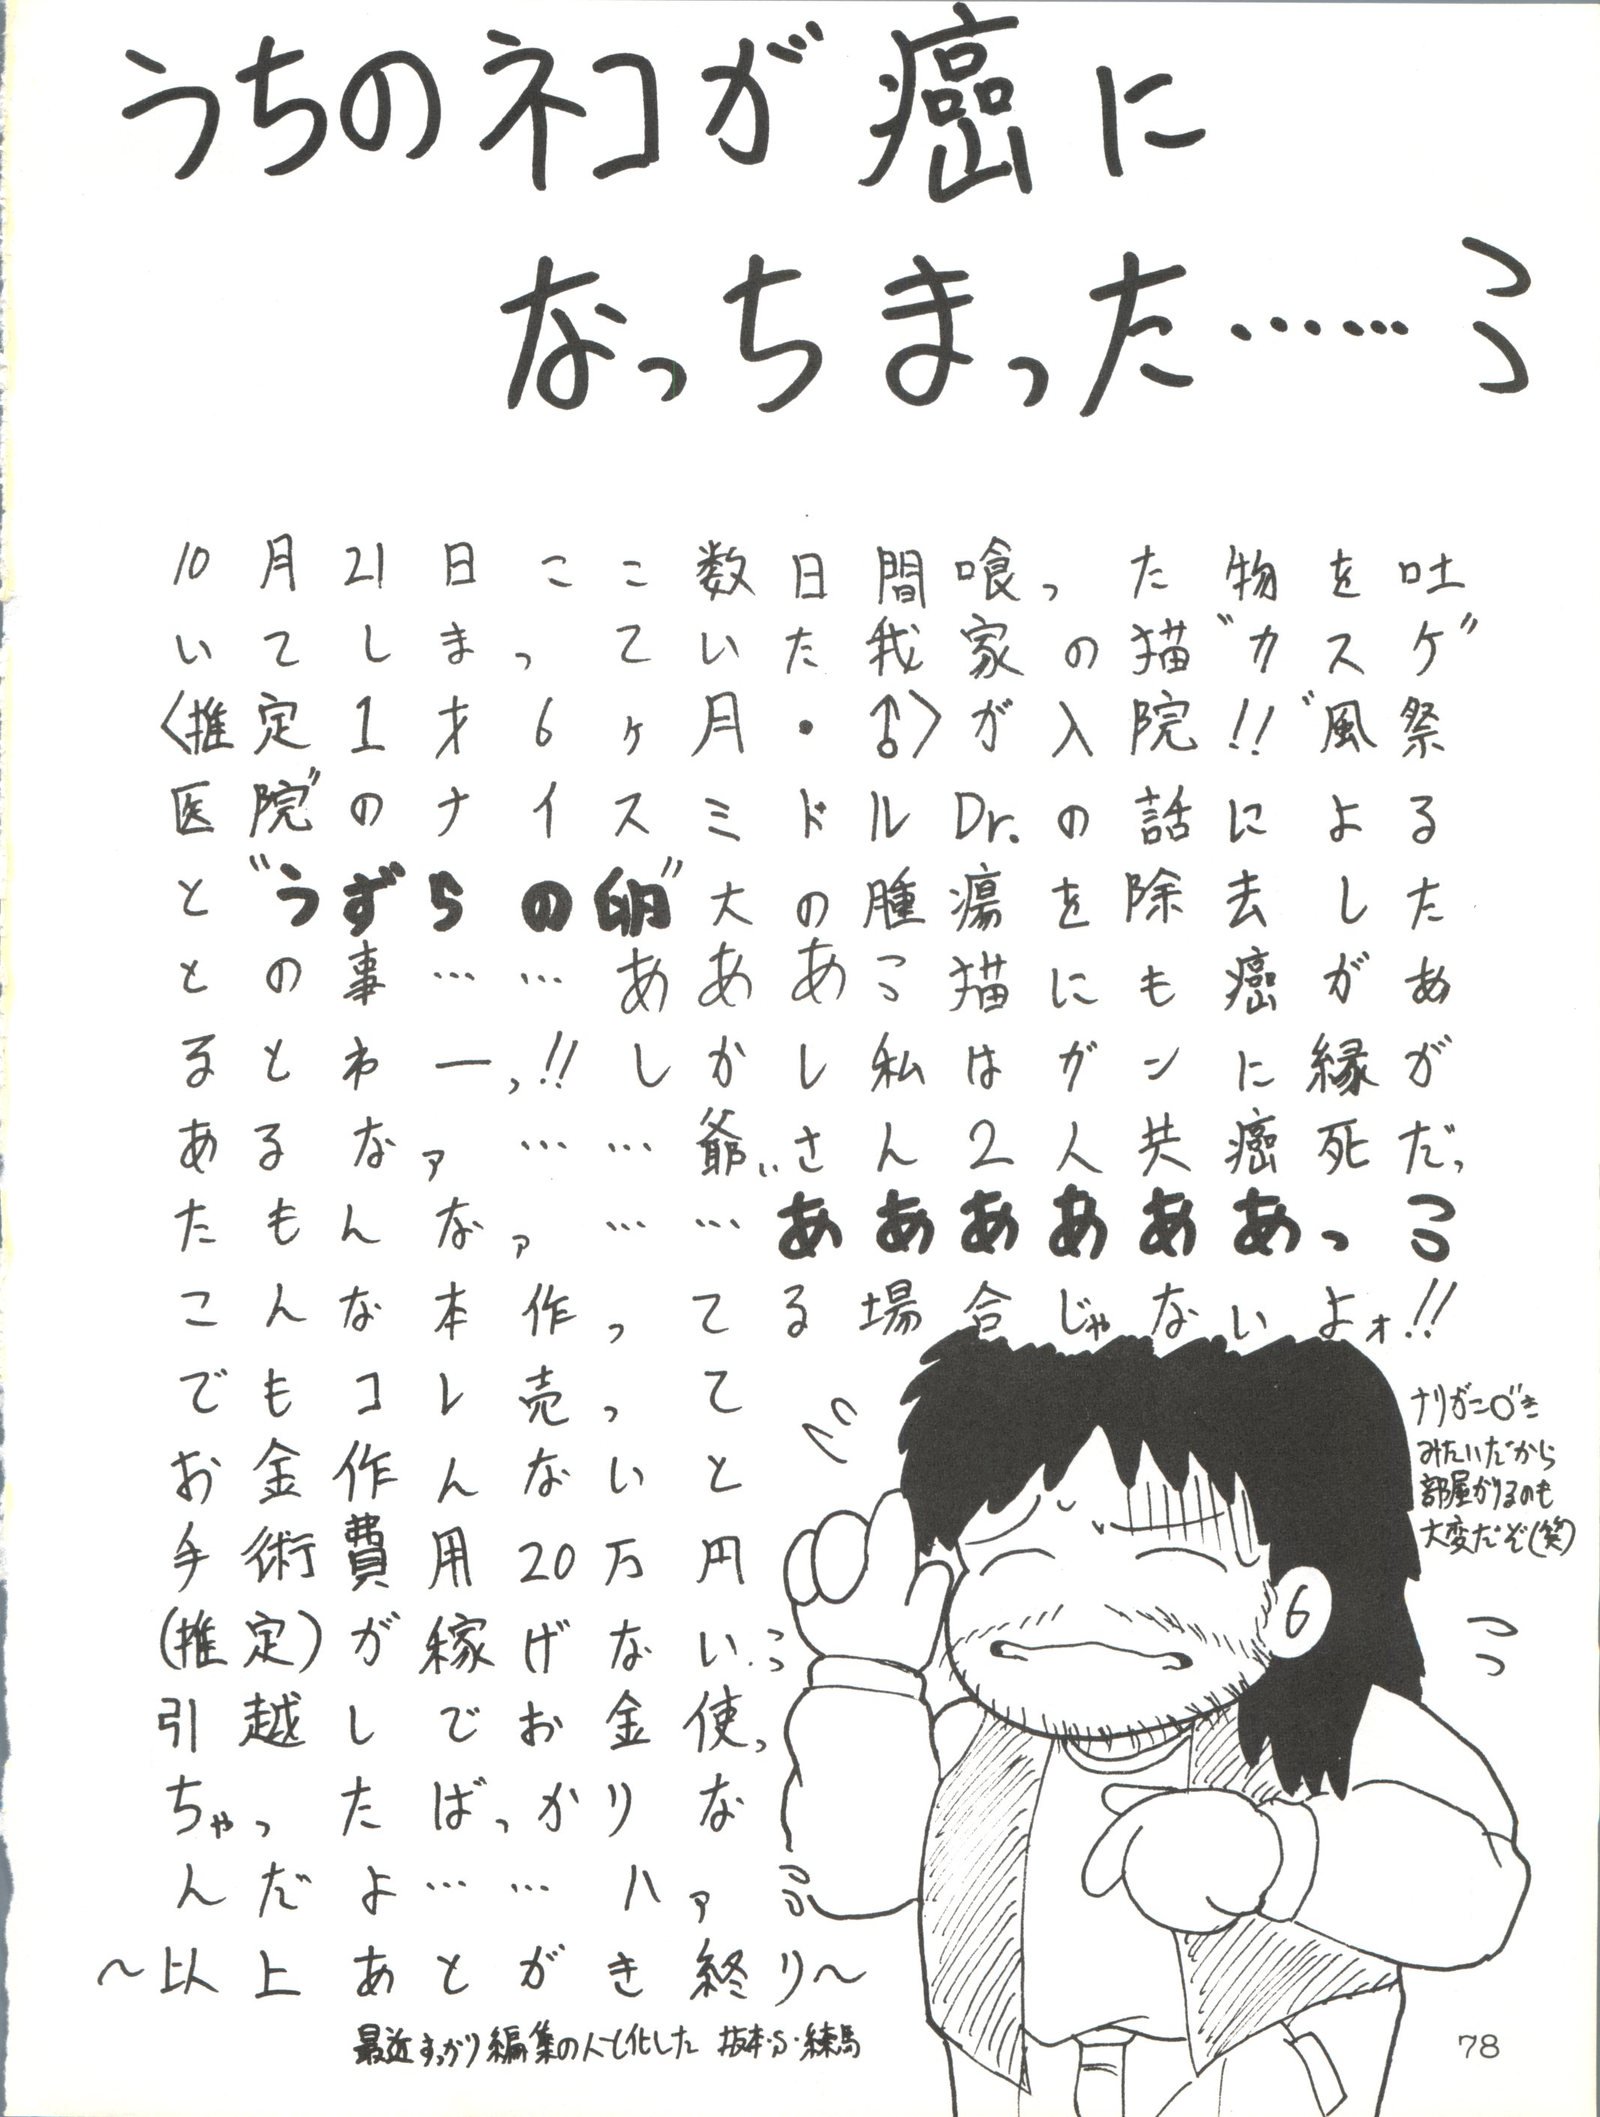 うちのネコが癌に
なっちまった……
10月21日ここ数日間喰った物を吐
いてしまっていた我家の猫“カスケ”
〈推定1才6ヶ月・♂〉が入院!!“風祭
医院”のナイスミドルDr.の話による
と“うずらの卵”大の腫瘍を除去した
との事……あああ猫にも癌があ
るとわーっ!!しかし私はガンに縁が
あるなァ……爺ぃさん2人共癌死だっ
たもんなァ……ああああああっ
こんな本作ってる場合じゃないよォ!!
でもコレ売って
お金作んないと
手術費用20万円
(推定)が稼げない
引越しでお金使っ
ちゃったばっかりな
んだよ……ハァ
～以上あとがき終り～
最近すっかり編集の人と化した 坂本・S・練馬
ナリがこ○″き
みたいだから
部屋かりるのも
大変だぞ(笑)
78